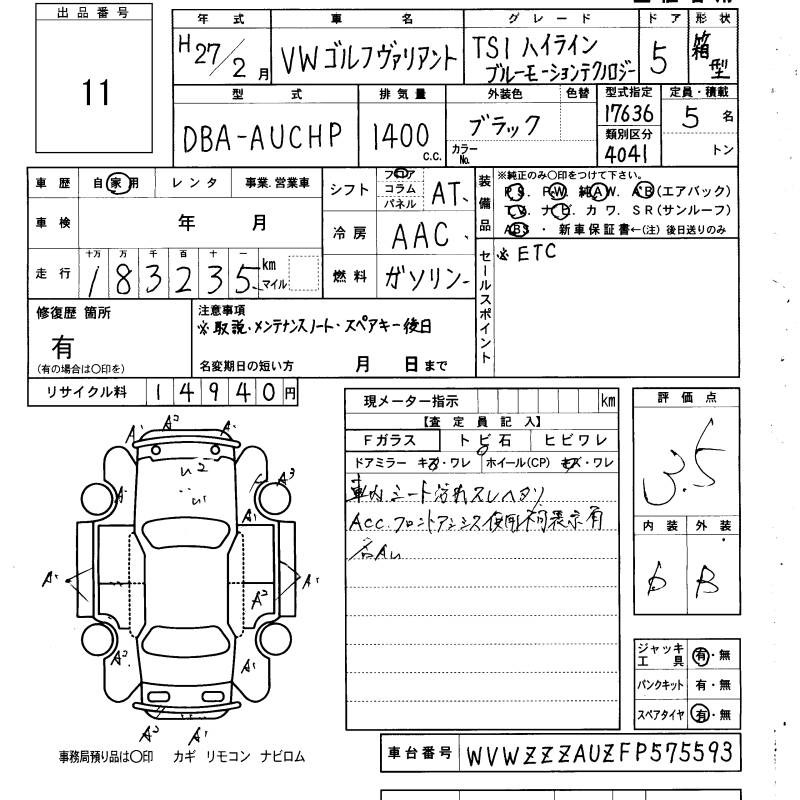 出品番号
11
年式 車名 グレード ドア 形状
H27/2月 VWゴルフヴァリアント TSI ハイライン ブルーモーションテクノロジー 5 箱型
型式 排気量 外装色 色替 型式指定 定員・積載
DBA-AUCHP 1400 c.c. ブラック カラーNo. 17636 5名
類別区分
4041 トン
車歴 自家用 レンタ 事業.営業車 シフト フロア コラム パネル AT. 装備品 ※純正のみ○印をつけて下さい。
P.S. P.W. 純A.W. A.B(エアバック)
車検 年 月 冷房 AAC. T.V. ナビ カワ. SR(サンルーフ)
ABS ・ 新車保証書←(注) 後日送りのみ
走行 十万 万 千 百 十 一
183235 km マイル 燃料 ガソリン セールスポイント ※ ETC
修復歴 箇所
有
(有の場合は○印を)
注意事項
※取説・メンテナンスノート・スペアキー後日
名変期日の短い方 月 日まで
リサイクル料 14940円
現メーター指示 km
【査定員記入】
Fガラス トビ石 ヒビワレ
ドアミラー キズ・ワレ ホイール(CP) キズ・ワレ
車内シート汚れスレヘタリ
Acc.フロントアシスト使用不可表示有
評価点
3.5
内装 外装
B
A² A¹ A¹
U2
U1
A³
A¹
A¹
A¹ A¹
A²
A²
A¹
A² A¹
ジャッキ工具 有・無
パンクキット 有・無
スペアタイヤ 有・無
事務局預り品は○印 カギ リモコン ナビロム
車台番号 WVWZZZAUZFP575593